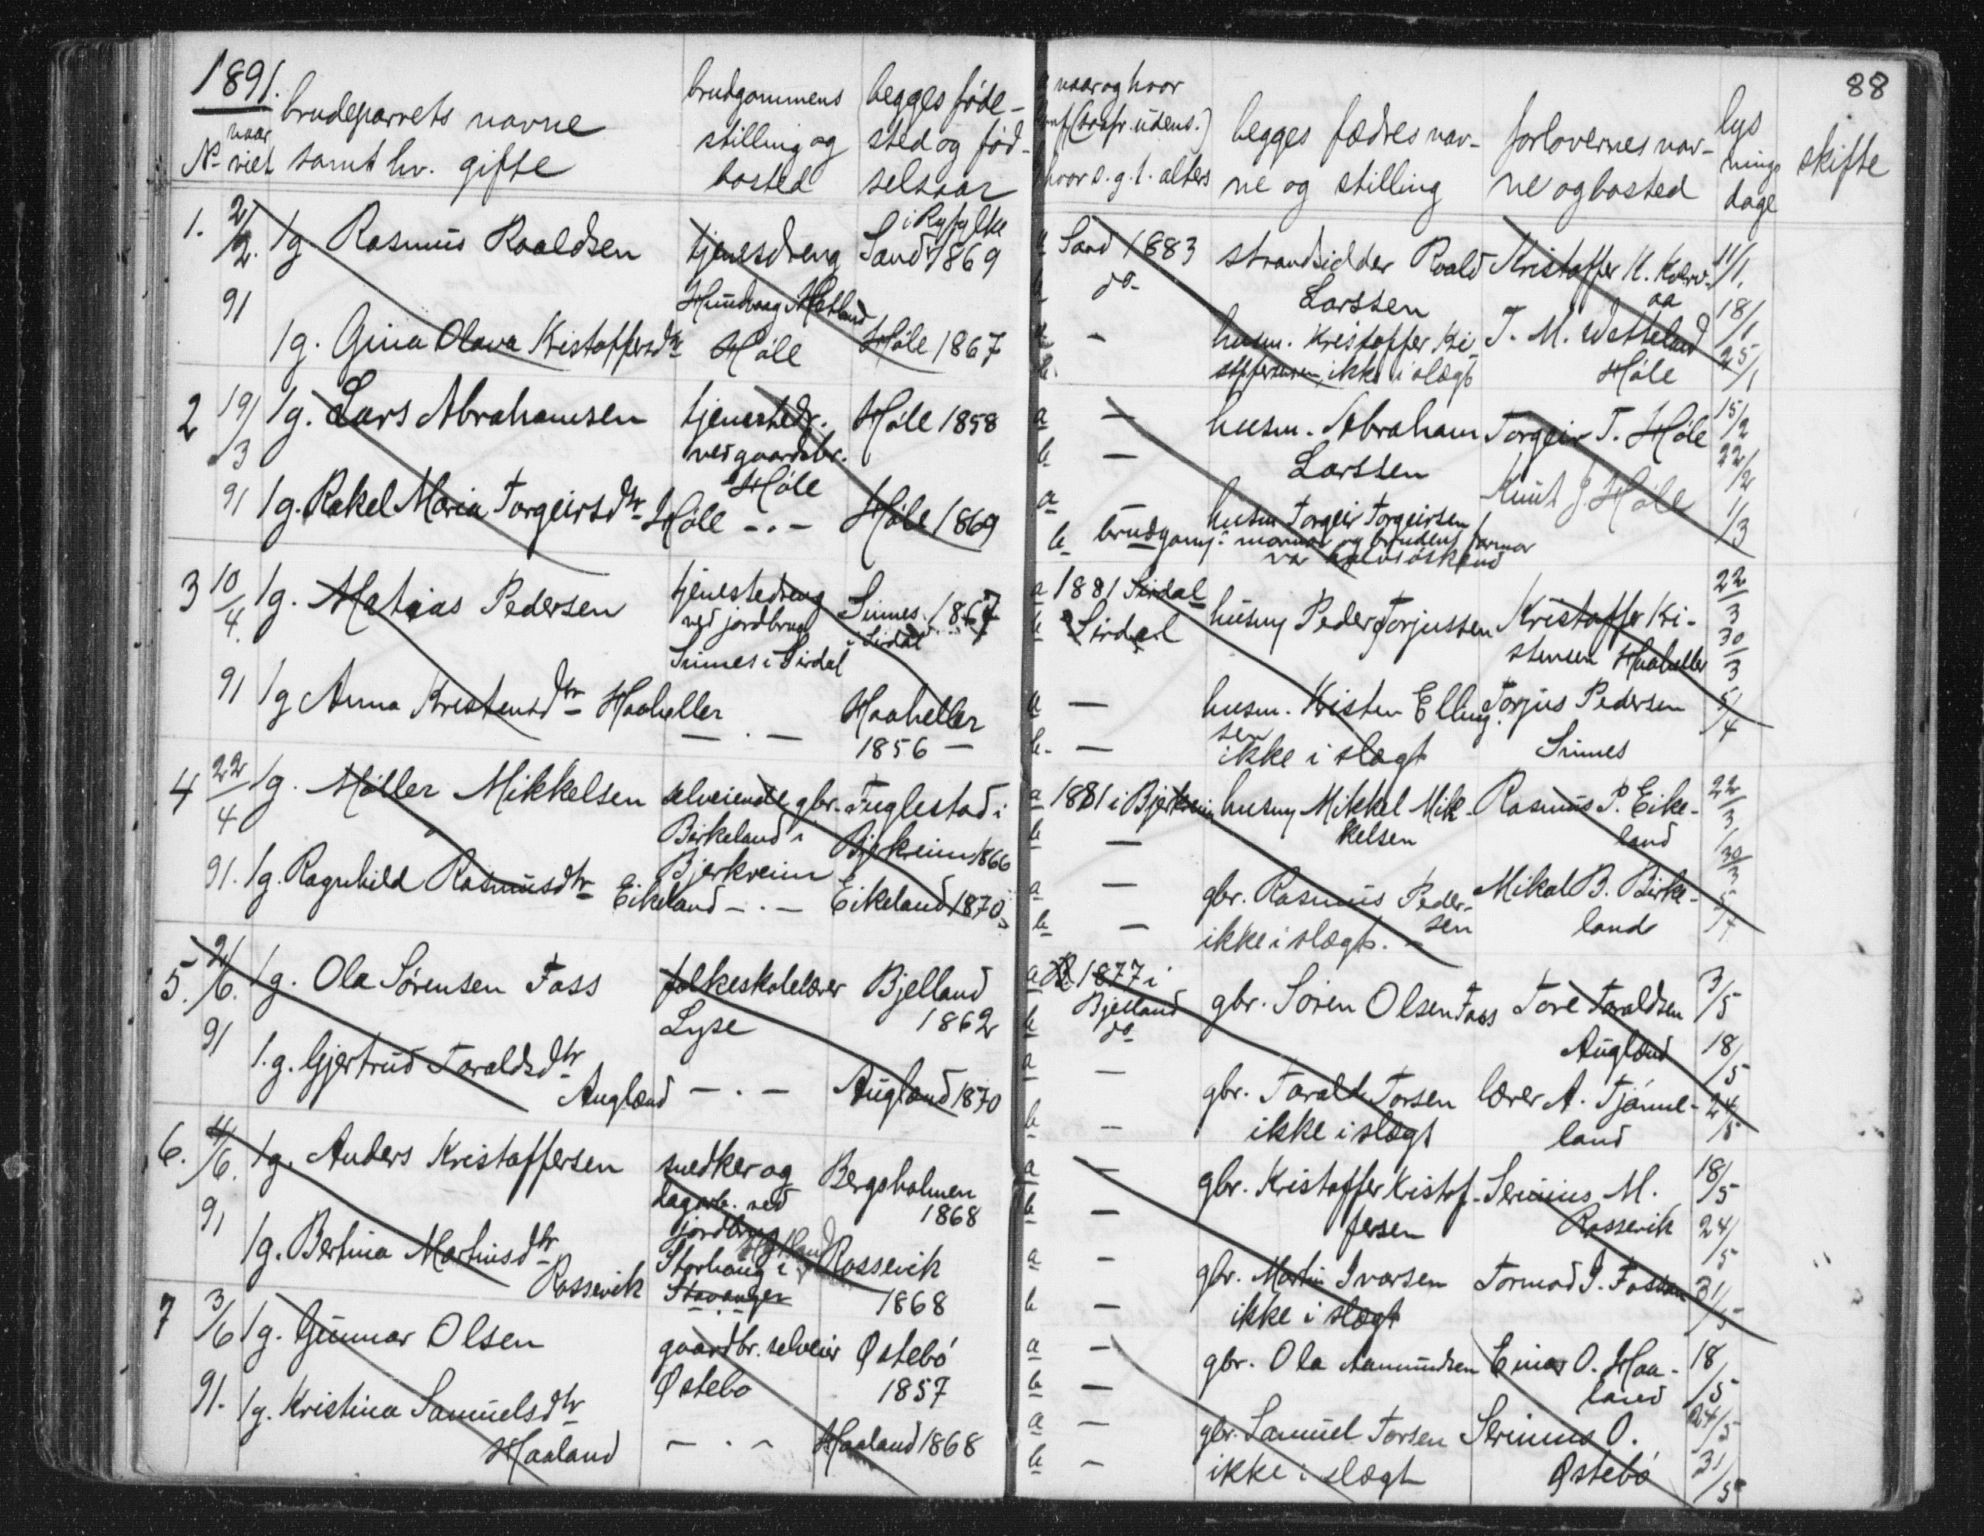 1891.
88
brudeparrets navne
samt hv. gifte
No naar viet
brudgommens
stilling og
bosted
begges føde-
sted og fød-
selsaar
naar og hvor
hvor s. g. t. alters
begges fædres nav-
ne og stilling
forlovernes nav-
ne og bosted
lys
nings
dage
skifte
1. 2/2. 91
1g. Rasmus Roaldsen
tjenesdreng
i Ryfylke
Sand 1869
Sand 1883
do
strandsidder Roald
Larssen
Kristoffer K.
11/1.
18/1
25/1
1g. Gina Olava Kristoffersdtr
Høle
Høle 1867
husm. Kristoffer Kri-
stoffersen, ikke i slægt
T. M.
Høle
2 19/3 91
1g. Lars Abrahamsen
tjenestedr.
ved gaardsbr.
Høle
Høle 1858
a —
b —
husm. Abraham
Larssen
Torgeir T. Høle
Knut J Høle
15/2
22/2
1/3
1g. Rakel Maria Torgeirsdtr Høle — . —
Høle 1869
a
b
husm Torgeir Torgeirsen
brudgom. mormor og brudens farmor
var
3 10/4. 91
1g. Matias Pedersen
tjenestedreng
ved jordbrug
Sinnes i Sirdal
Sinnes 1867
i Sirdal
a 1881 Sirdal
b Sirdal
husm Peder Torjussen
Kristoffer Kri-
stensen Haaheller
22/3
30/3
5/4
1g Anna Kristensdtr Haaheller
— . —
Haaheller
1856 —
a —
b. —
husm. Kristen Elling-
sen
ikke i slægt
Torjus Pedersen
Sinnes
4 22/4 91.
1g. Møller Mikkelsen
selveiende gbr.
Birkeland i
Bjerkreim
Fuglestad i
Bjerkreim 1866
a 1881 i Bjerkreim
b —
husm Mikkel Mik-
kelsen
Rasmus P. Eike-
land
22/3
30/3
5/4
1g. Ragnhild Rasmusdtr Eikeland — . —
Eikeland 1870
a —
b —
gbr. Rasmus Peder-
sen
ikke i slægt. —
Mikal B. Birke-
land
5. 2/6. 91
1g. Ola Sørensen Foss
folkeskolelærer
Lyse
Bjelland
1862
a 1877 i
Bjelland
b do
gbr. Sören Olsen Foss
Tore Taraldsen
Augland
3/5
18/5
24/5
1.g. Gjertrud Taraldsdtr
Augland — . —
Augland 1870
a —
b —
gbr. Tarald Torsen
ikke i slægt
lærer A. Tjømme-
land
6. 4/6. 91
1g. Anders Kristoffersen
snedker og
dagarb. ved
jordbrug
Storhaug i
Stavanger
Bergsholmen
1868
a —
b —
gbr. Kristoffer Kristof-
fersen
Serinius M.
Rossevik
18/5
24/5
31/5
1g. Bertina Martinsdtr
Rossevik
Rossevik
1868
a —
b —
gbr. Martin Ivarsen
ikke i slægt
Tormod I. Fossan
7 3/6 91.
1g. Gunnar Olsen
gaardbr. selveier
Østebø
Østebö
1857
a —
b —
gbr. Ola Aamundsen
Einar O. Haa-
land
18/5
24/5
31/5
1g. Kristina Samuelsdtr
Haaland
— . —
Haaland 1868
a —
b —
gbr. Samuel Torsen
ikke i slægt
Serinius O.
Østebö